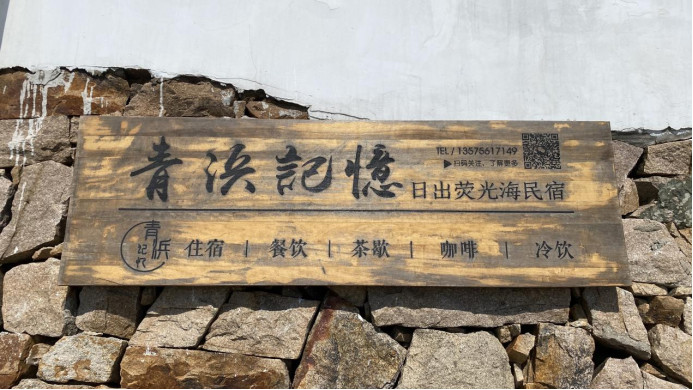 青浜記憶
TEL/13575617149
▶扫码关注,了解更多
日出荧光海民宿
青浜记忆
住宿 | 餐饮 | 茶歇 | 咖啡 | 冷饮